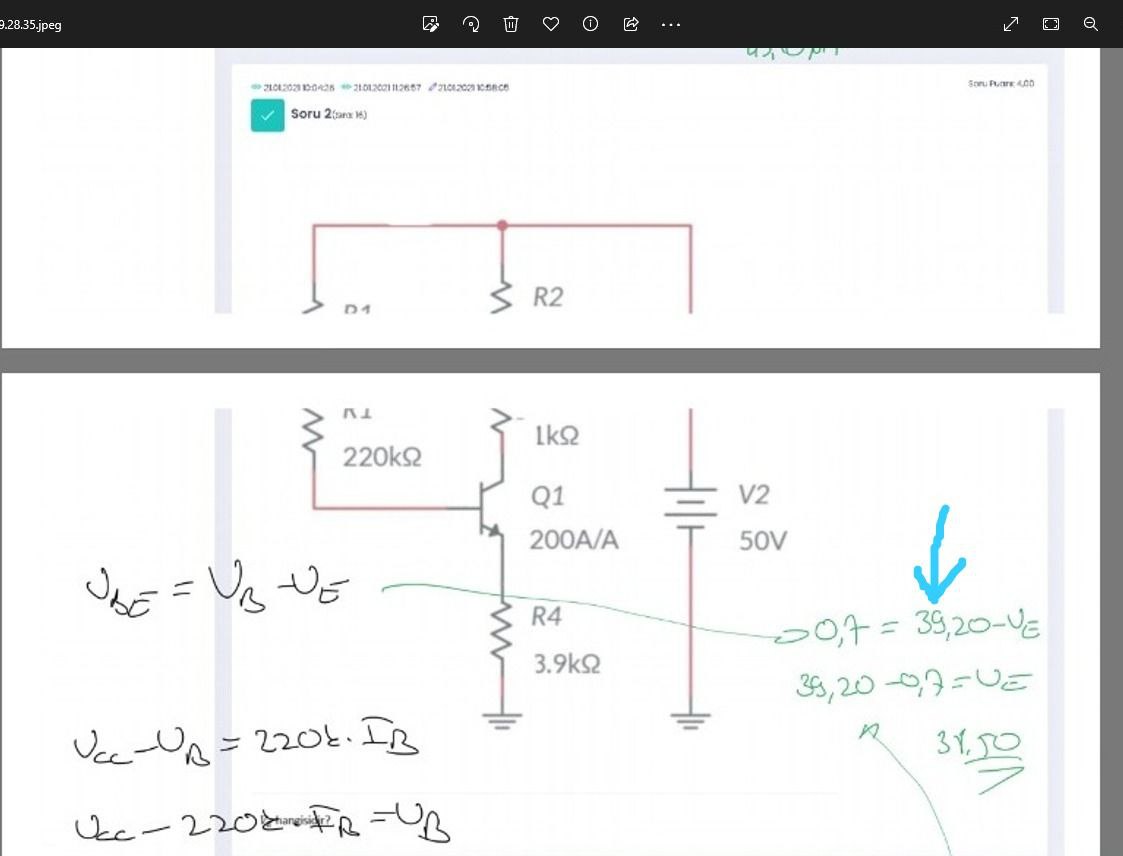 9.28.35.jpeg
21.01.2021 10:04:26 21.01.2021 11:26:57 21.01.2021 10:58:05
Soru Puanı: 4,00
Soru 2 (Sıra: 16)
R2
R1
R1
1kΩ
220kΩ
Q1
V2
200A/A
50V
VBE = VB - VE
R4
0,7 = 39,20 - VE
3.9kΩ
39,20 - 0,7 = VE
VCC - VB = 220k . IB
VCC - 220k . IB = VB
hangisidir?